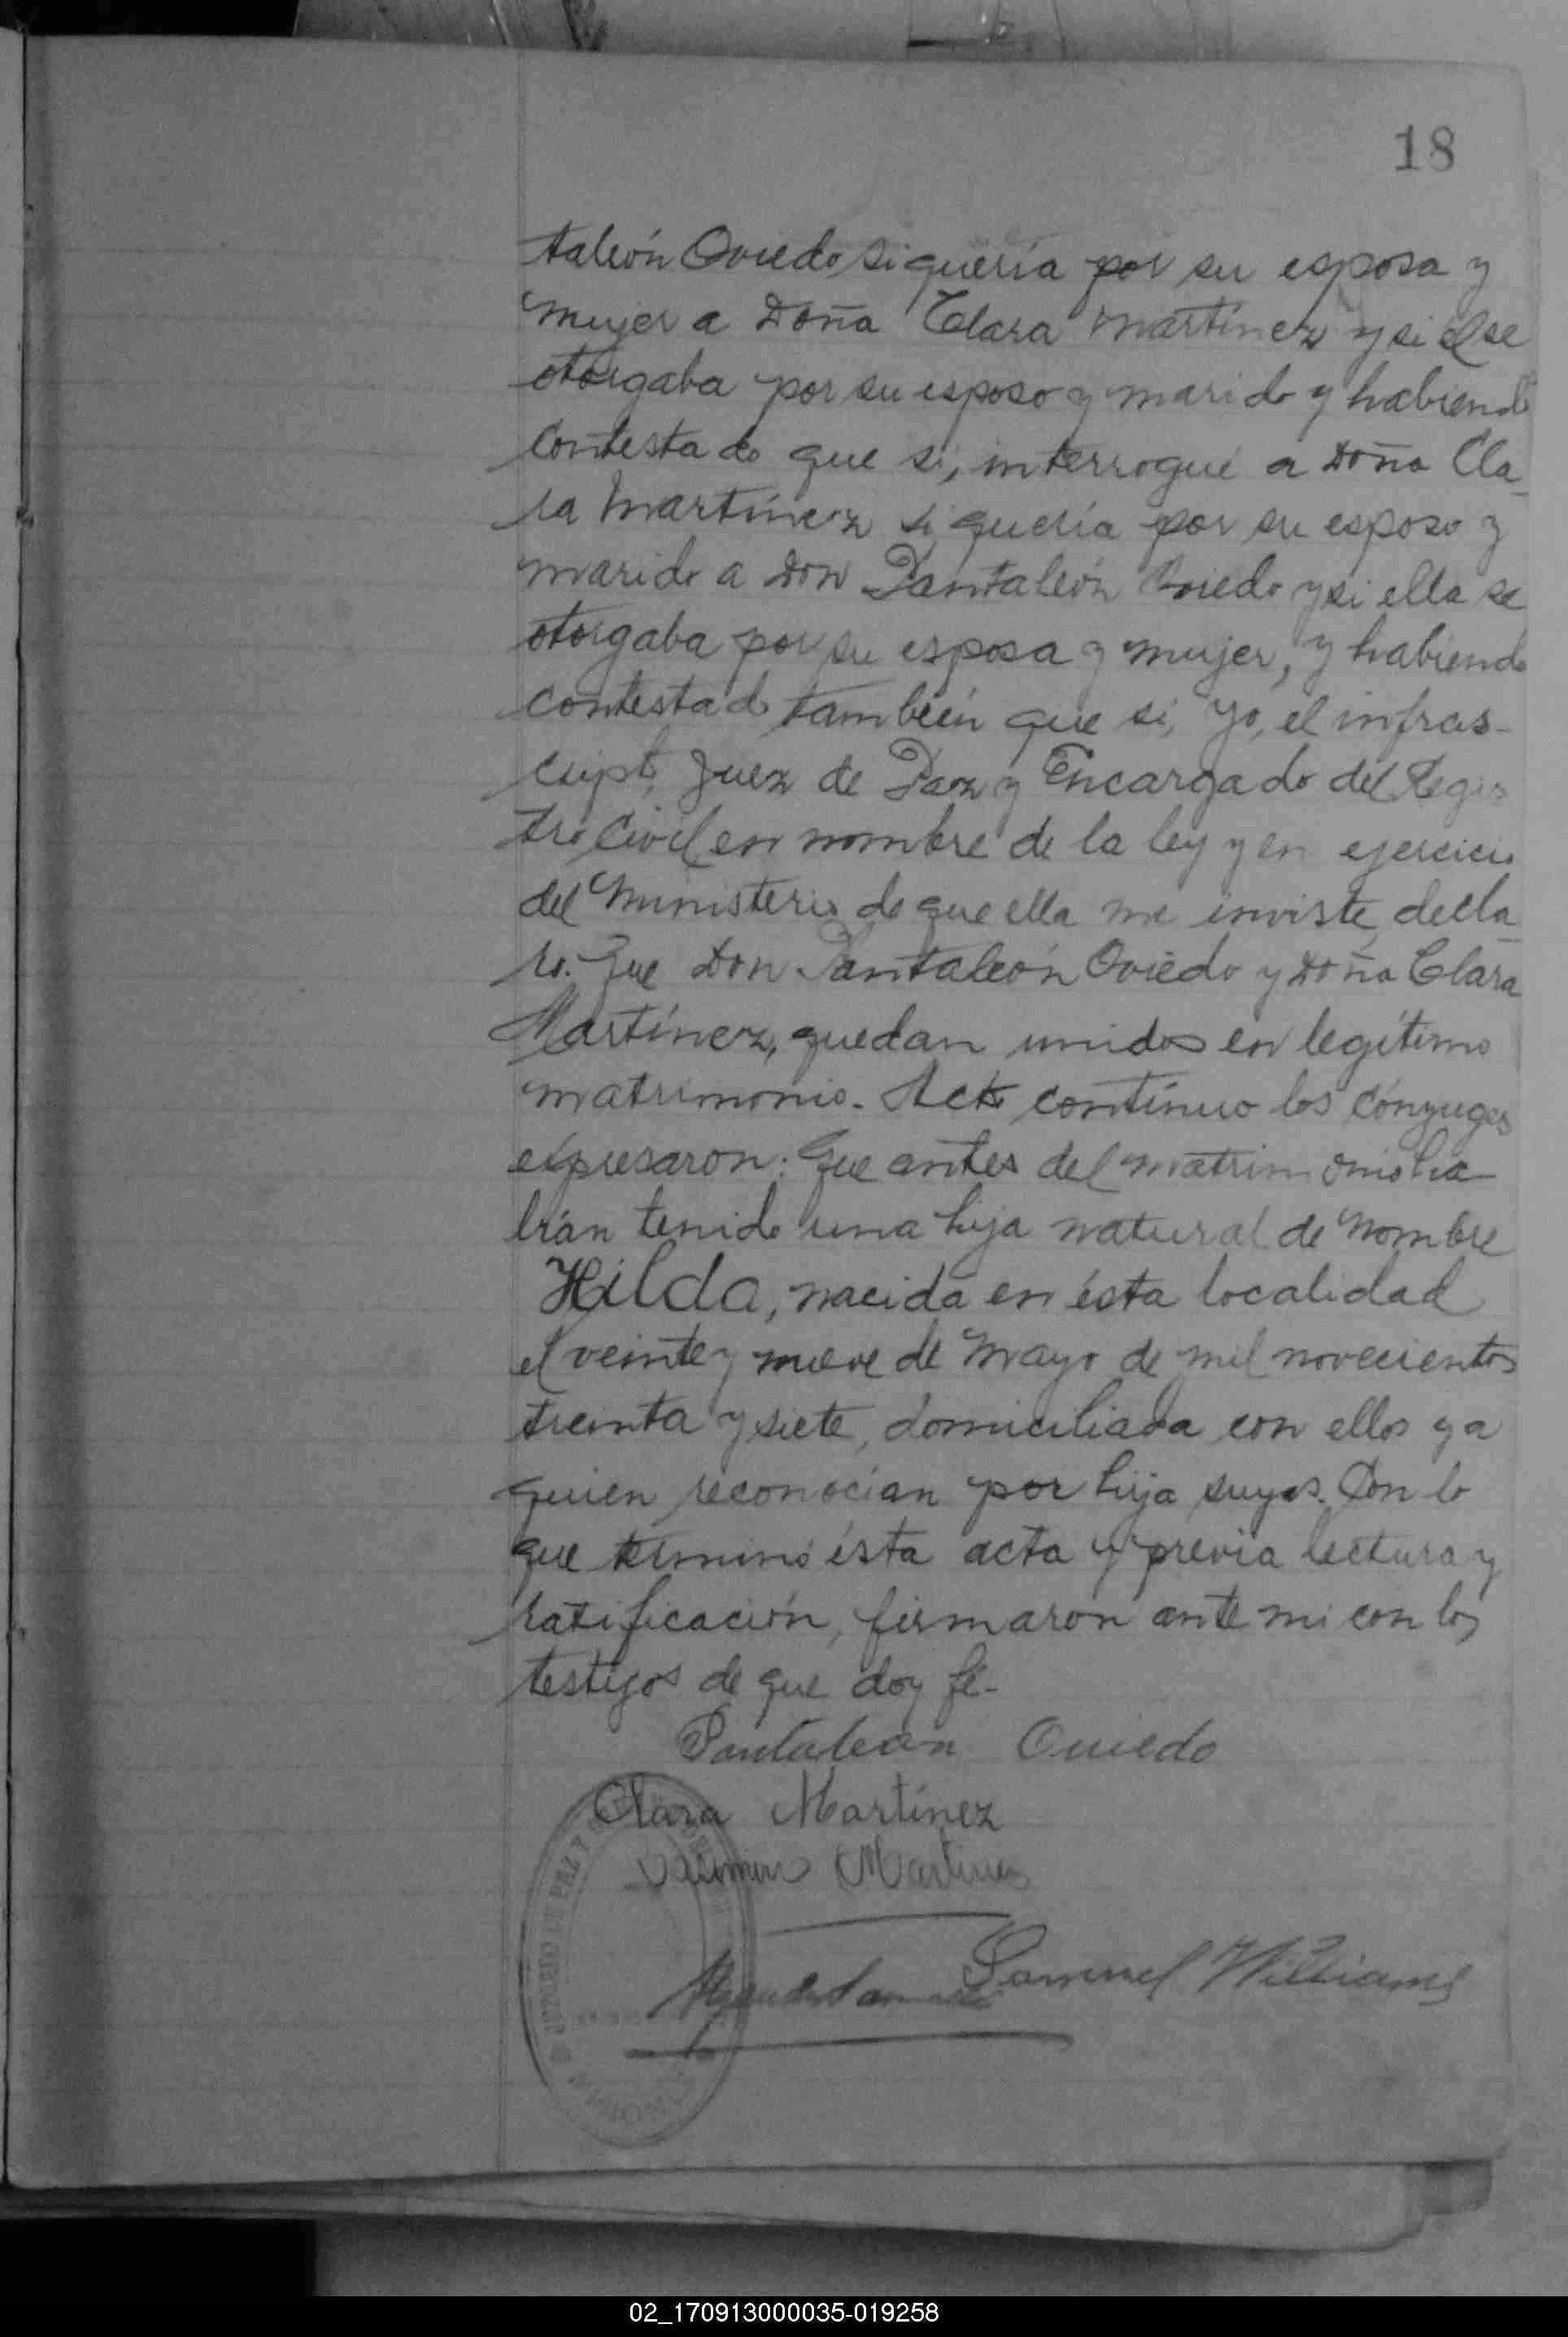 18
taleón Oviedo si quería por su esposa y
mujer a Doña Clara Martínez y si él se
otorgaba por su esposo y marido y habiendo
contestado que si, interrogué a Doña Cla_
ra Martínez si quería por su esposo y
marido a Don Pantaleón Oviedo y si ella se
otorgaba por su esposa y mujer, y habiendo
contestado también que si, Yo, el infras-
cripto, Juez de Paz y Encargado del Regis
tro Civil, en nombre de la ley y en ejercicio
del Ministerio de que ella me inviste, decla_
ro. Que Don Pantaleón Oviedo y Doña Clara
Martínez, quedan unidos en legítimo
matrimonio. Acto contínuo los cónyuges
expresaron: Que antes del matrimonio ha_
bían tenido una hija natural de nombre
Hilda, nacida en ésta localidad
el veinte y nueve de Mayo de mil novecientos
treinta y siete, domiciliada con ellos y a
quien reconocían por hija suya. Con lo
que terminó ésta acta y previa lectura y
ratificación, firmaron ante mi con los
testigos de que doy fé.-
Pantaleon Oviedo
Clara Martínez
Martinez
Samuel Williams
PAZ Y
02_170913000035-019258